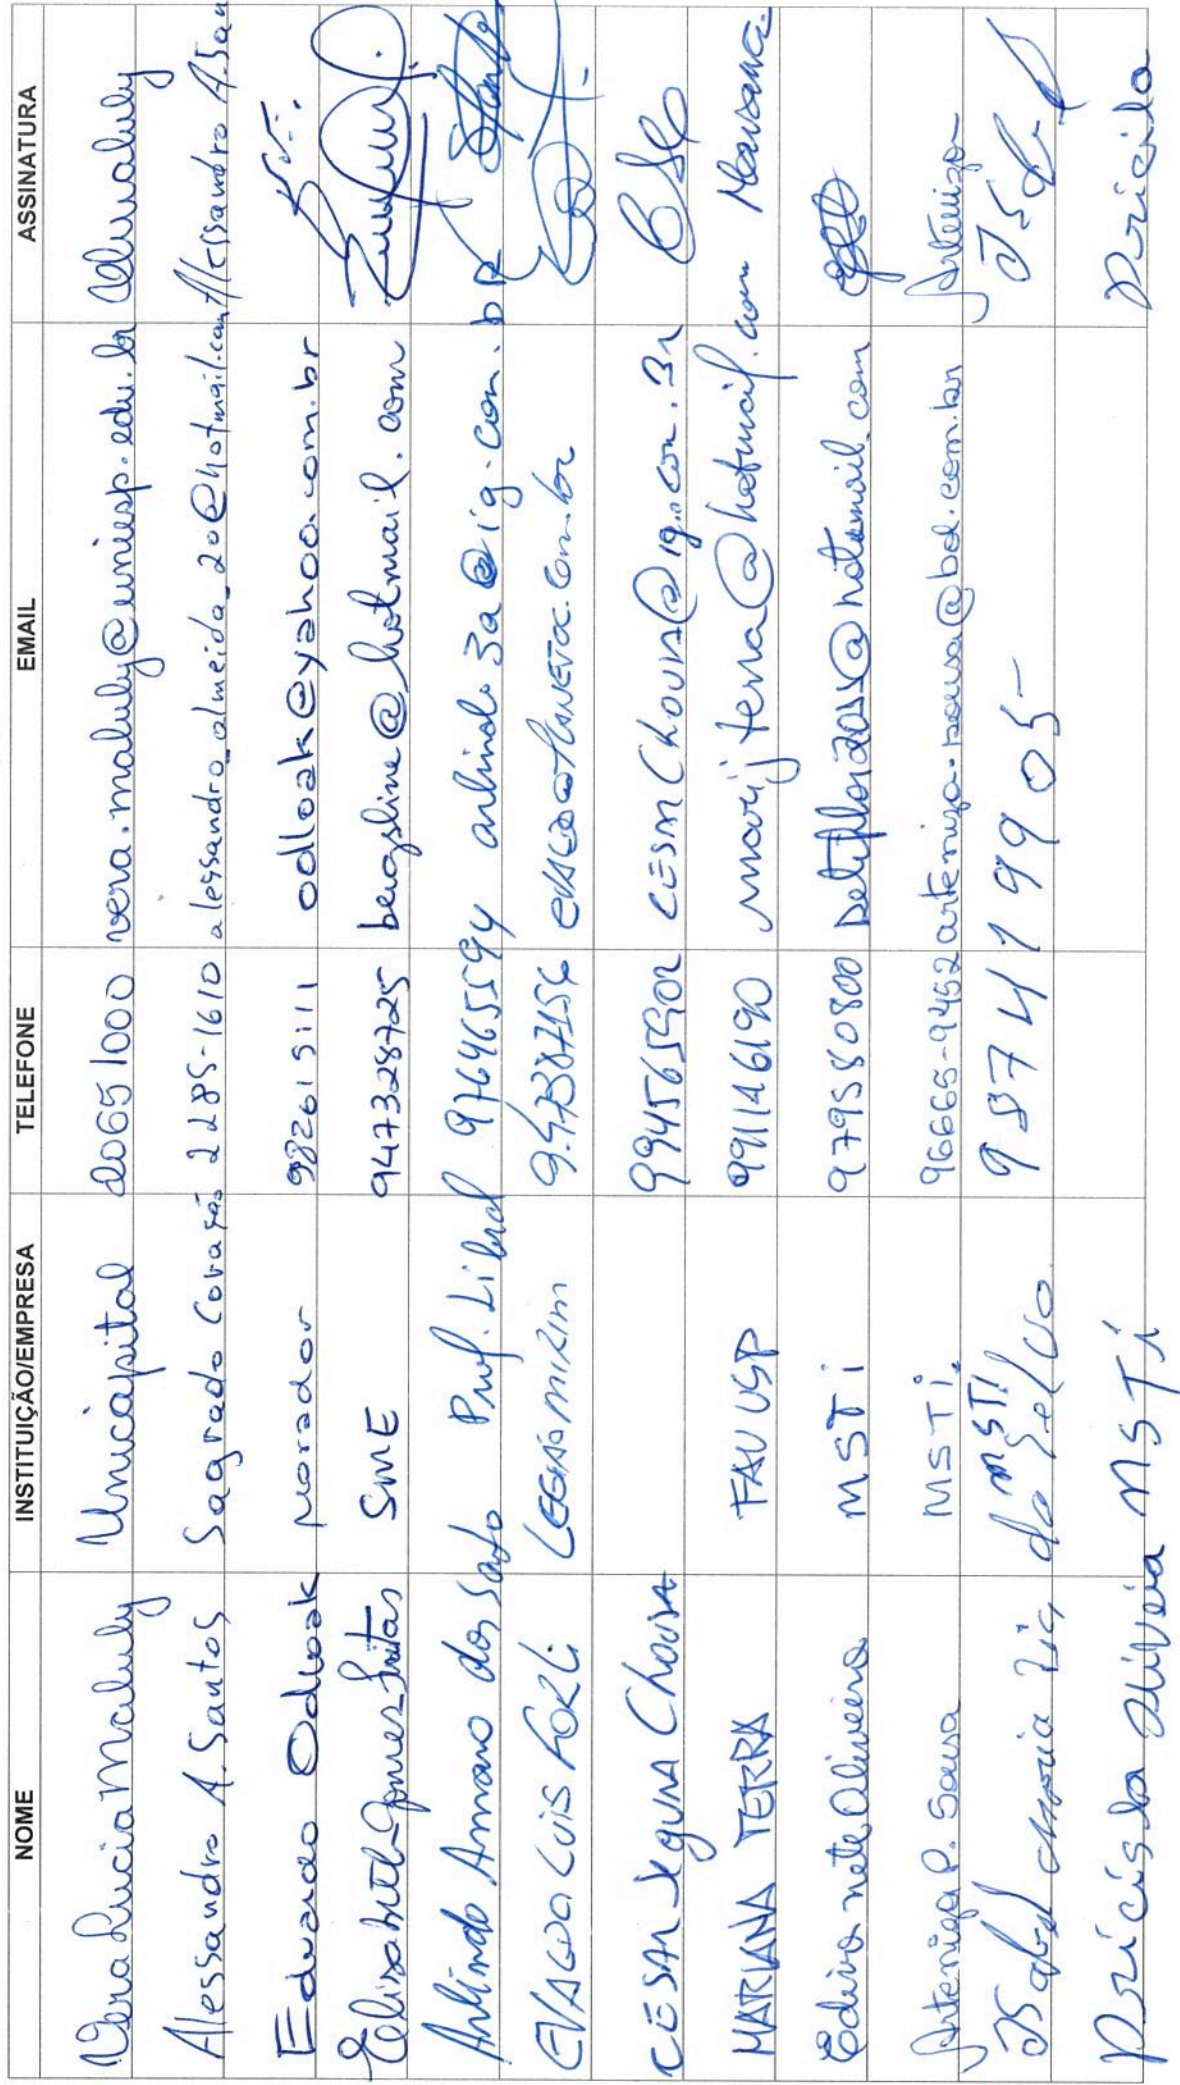 NOME INSTITUIÇÃO/EMPRESA TELEFONE EMAIL ASSINATURA
Vera Lucia Maluly Unicapital 20651000 vera.maluly@uniesp.edu.br
Alessandro A. Santos Sagrado Coração 2285-1610 alessandro_almeida_20@hotmail.com Alessandro A. San
Eduardo Odloak morador 982615511 odloak@yahoo.com.br
Elisabeth Gomes Freitas SME 947328725 @hotmail.com
Arlindo Amaro dos Santo Prof. Liberal 976465594 arlindo.3a@ig.com.br
EVALDO LUIS FORLI LEGIÃO MIRIM
CESAR CHOUSA 994565902
MARIANA TERRA FAU USP 991146190 marijterra@hotmail.com Mariana
Edivonete Oliveira MSTI 979580800
Arteniza P. Sousa MSTI. 96665-9452 arteniza.sousa@bol.com.br Arteniza
Maria MSTI 987411905-
Priscila Oliveira MSTI Priscila